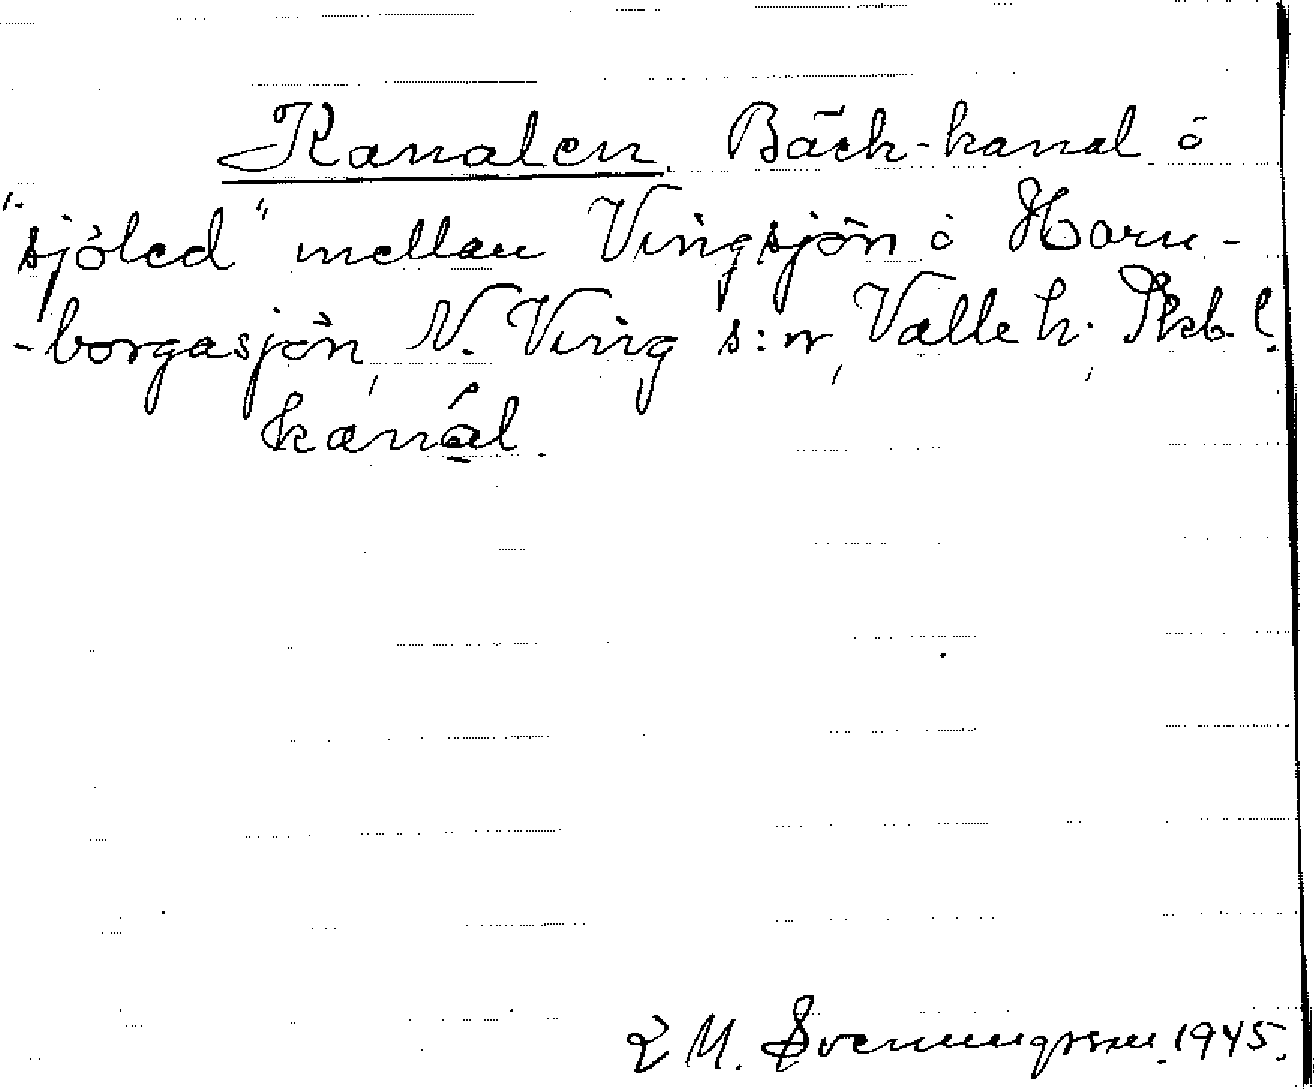 Kanalen. Bäck-kanal ó
"sjöled" mellan Vingsjön ó Horn-
-borgasjön, N. Ving s:n, Valle h; Skb l.
kanál.
L M. Svenningsson. 1945.